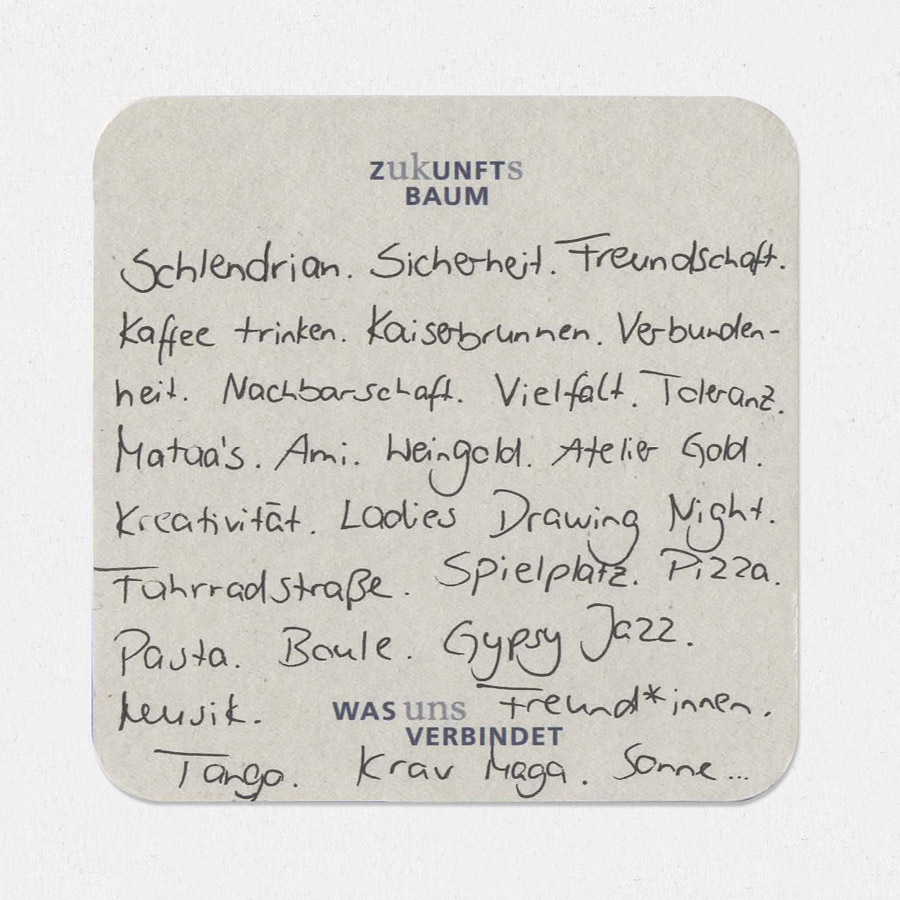 ZukUNFTs
BAUM
Schlendrian. Sicherheit. Freundschaft.
Kaffee trinken. Kaiserbrunnen. Verbunden-
heit. Nachbarschaft. Vielfalt. Toleranz.
Mataa's. Ami. Weingold. Atelier Gold.
Kreativität. Ladies Drawing Night.
Fahrradstraße. Spielplatz. Pizza.
Pasta. Boule. Gypsy Jazz.
Musik. Freund*innen.
WAS uns
VERBINDET
Tango. Krav Maga. Sonne...